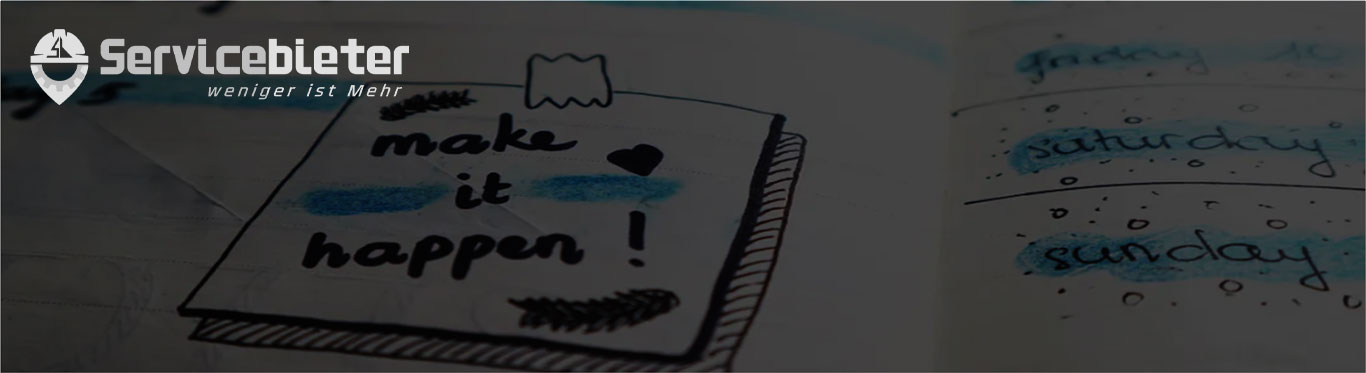 Servicebieter
weniger ist Mehr
make
it
happen !
friday 10
saturday
sunday